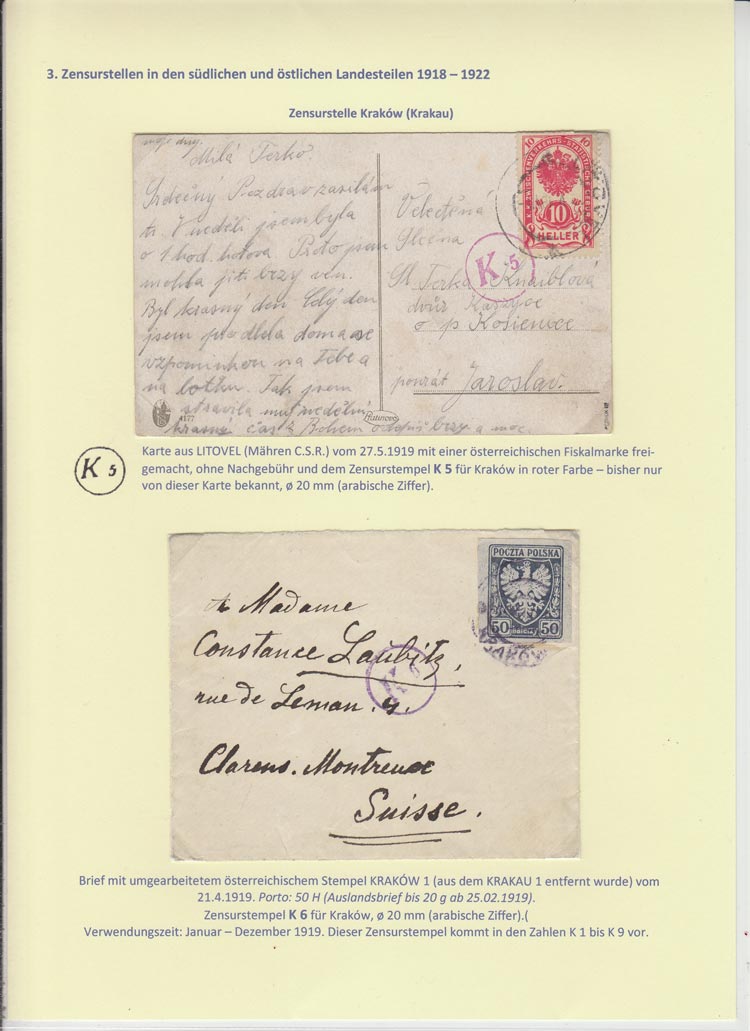 3. Zensurstellen in den südlichen und östlichen Landesteilen 1918 – 1922
Zensurstelle Kraków (Krakau)
Milá Terko.
Srdečný Pozdrav zasílám
ti. V neděli jsem byla
o 1 hod. hotova. Proto jsem
mohla jíti brzy ven.
Byl krasný den. Celý den
jsem proseděla doma se
vzpomínkou na Tebe a
na
Tak jsem
stravila
nedělní
krasný čas z Bohem
brzy a moc.
4177
Velectěná
Slečna
Sl. Terka Knaiblová
dvůr
o p Kosienice
Jaroslav.
10 10
K.K. ZWISCHENVERKEHRS-STATISTISCHE GEBÜHR
10
HELLER
K 5
K 5
Karte aus LITOVEL (Mähren C.S.R.) vom 27.5.1919 mit einer österreichischen Fiskalmarke frei-
gemacht, ohne Nachgebühr und dem Zensurstempel K 5 für Kraków in roter Farbe – bisher nur
von dieser Karte bekannt, ø 20 mm (arabische Ziffer).
POCZTA POLSKA
50 HALERZY 50
KRAKÓW
Madame
Constance Laubitz,
K 6
rue de Leman. 4.
Clarens. Montreux
Suisse.
Brief mit umgearbeitetem österreichischem Stempel KRAKÓW 1 (aus dem KRAKAU 1 entfernt wurde) vom
21.4.1919. Porto: 50 H (Auslandsbrief bis 20 g ab 25.02.1919).
Zensurstempel K 6 für Kraków, ø 20 mm (arabische Ziffer).(
Verwendungszeit: Januar – Dezember 1919. Dieser Zensurstempel kommt in den Zahlen K 1 bis K 9 vor.